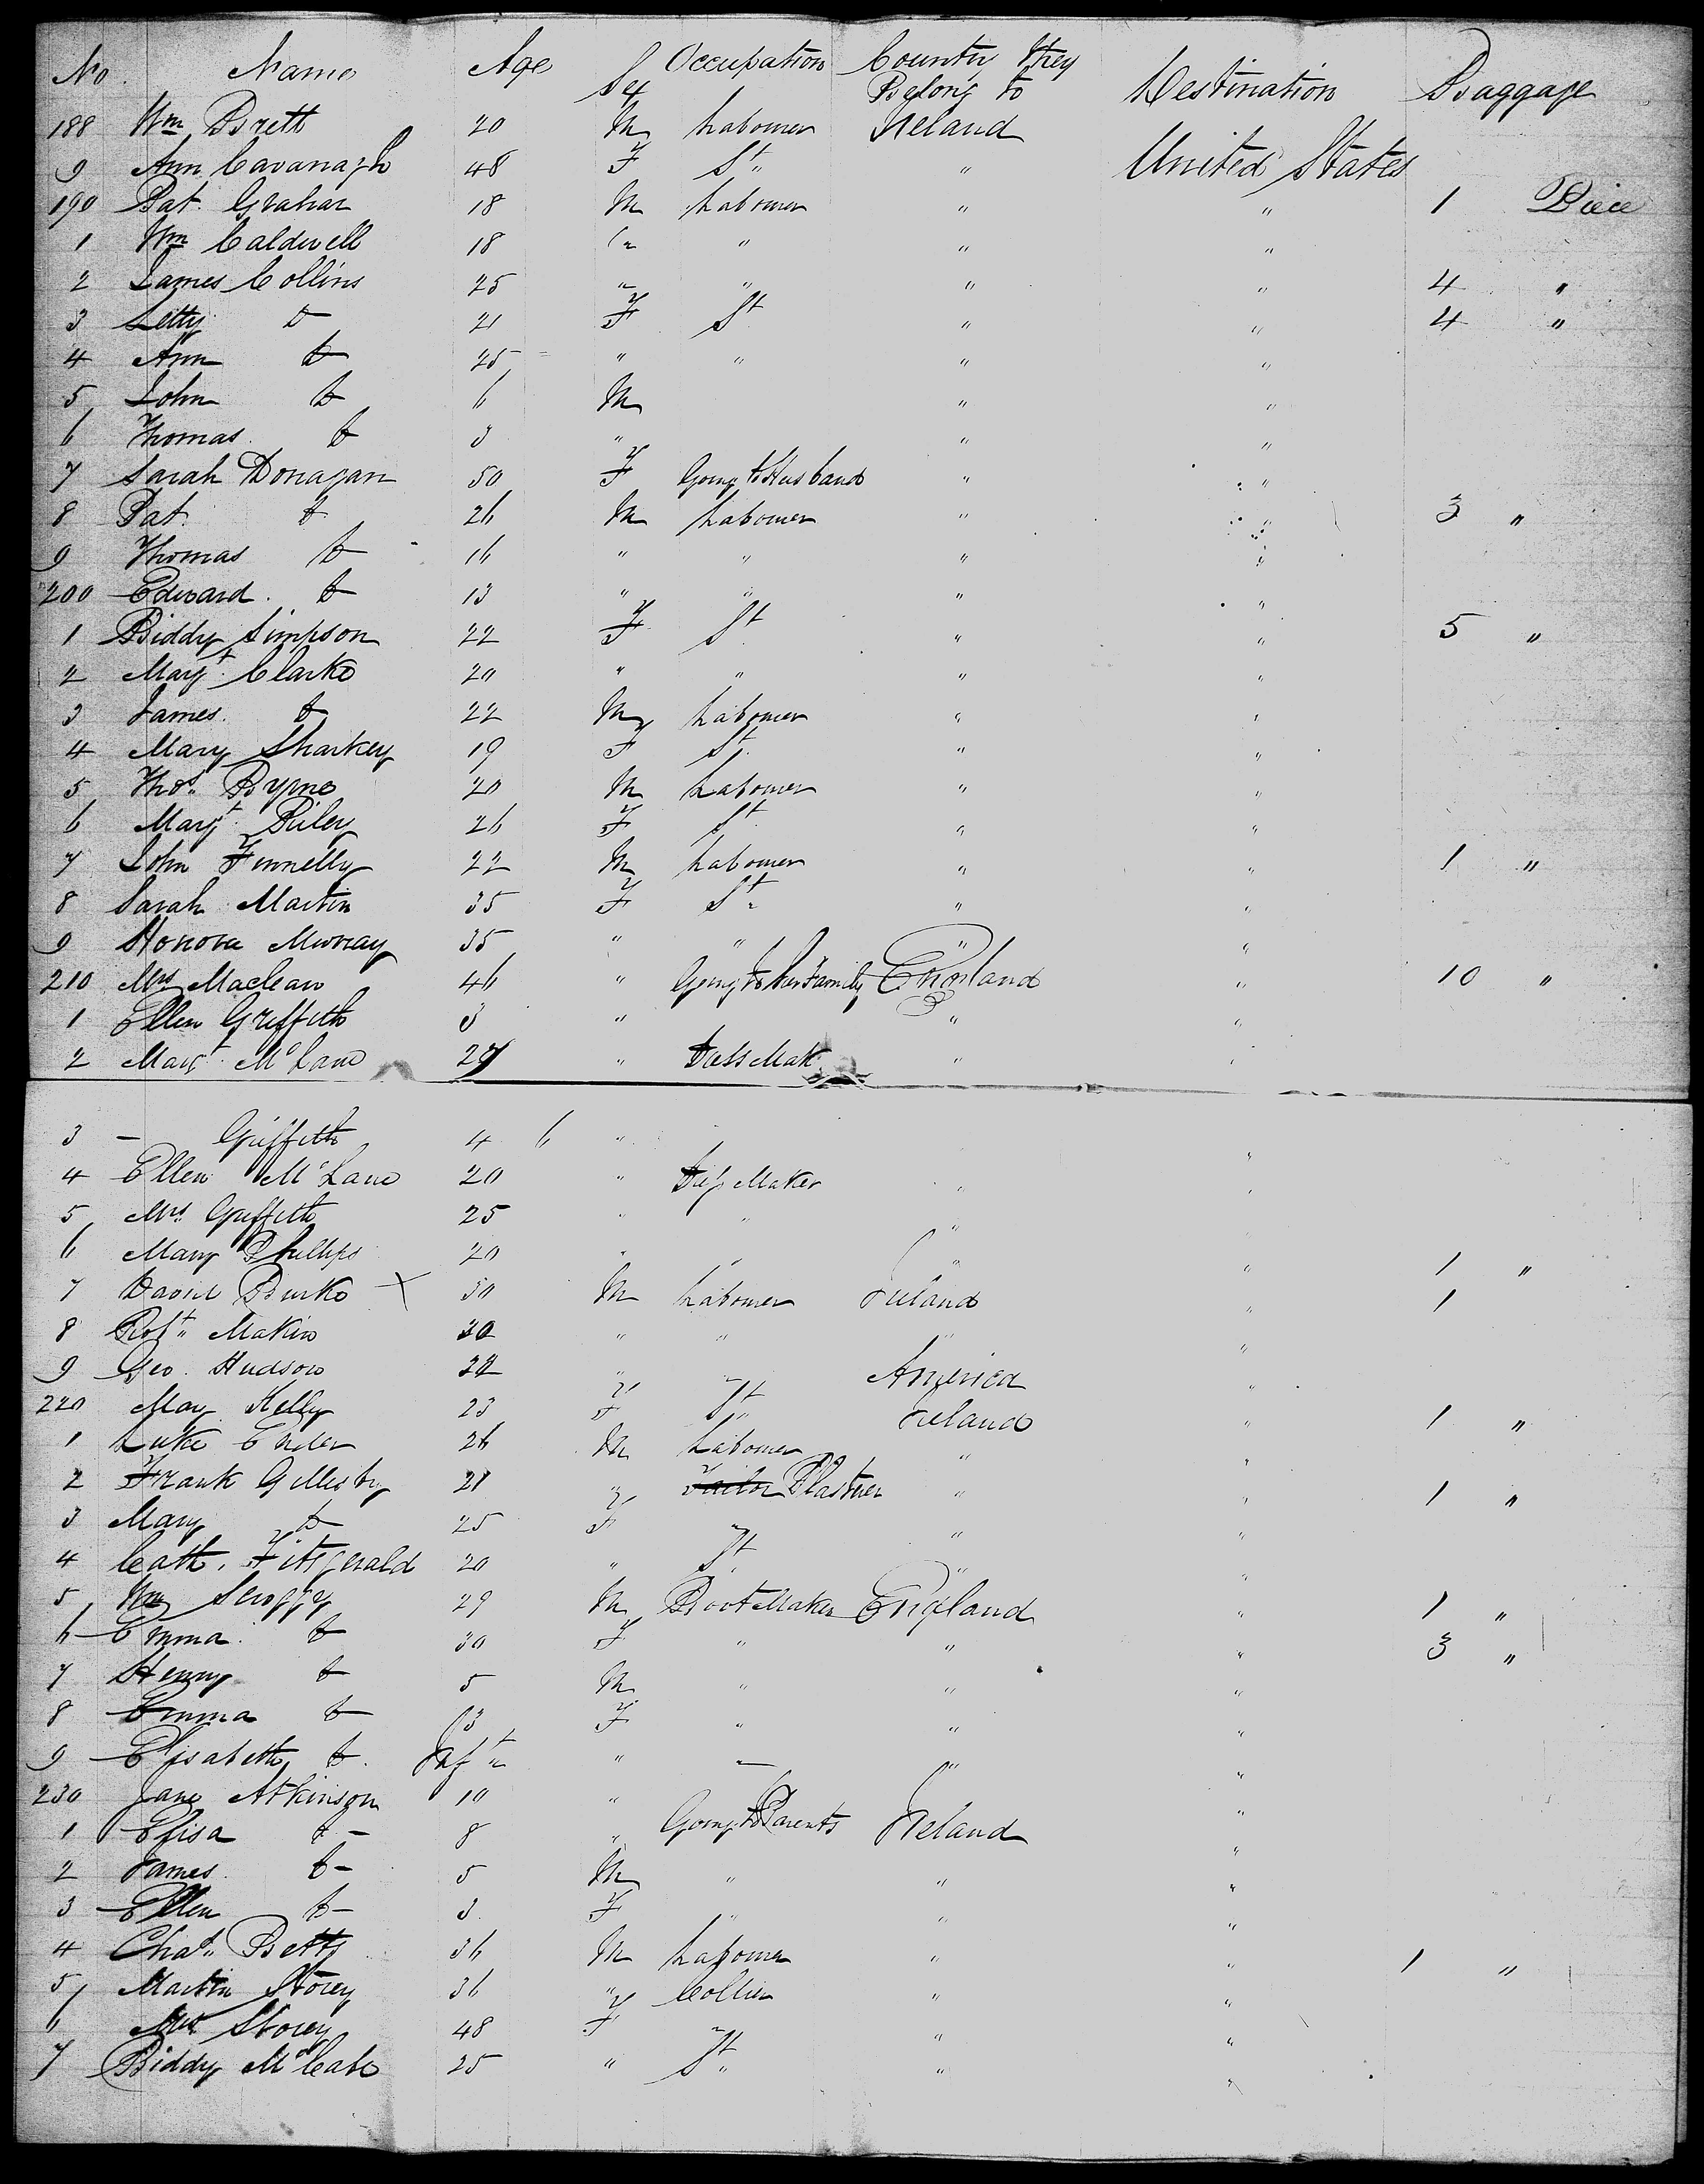 No Name Age Sex Occupation Country they Belong to Destination Baggage
188 Wm Brett 20 M Labourer Ireland
9 Ann Cavanagh 48 F St " United States
190 Pat. Grahar 18 M Labourer " " 1 Piece
1 Wm Caldwell 18 " " " "
2 James Collins 25 " " " " 4 "
3 Letty D 21 F St " " 4 "
4 Ann D 25 " " " "
5 John D 6 M " "
6 Thomas D 3 " " "
7 Sarah Donagan 50 F Going to Husband " "
8 Pat. D 26 M Labourer " " 3 "
9 Thomas D 16 " " " "
200 Edward. D 13 " " " "
1 Biddy Simpson 22 F St " " 5 "
2 Margt Clarke 20 " " " "
3 James. D 22 M Labourer " "
4 Mary Sharkey 19 F St. " "
5 Thos. Byrne 20 M Labourer " "
6 Margt Riley 26 F St " "
7 John Finnelly 22 M Labourer " " 1 "
8 Sarah Martin 35 F St " "
9 Honora Murray 35 " " " "
210 Mrs Maclean 46 " Going to her Family England " 10 "
1 Ellen Griffith 3 " " "
2 Margt. McLane 27 " Dress Mak " "
3 – Griffith 4 6 " "
4 Ellen McLane 20 " Dress Maker " "
5 Mrs. Griffith 25 " " " "
6 Mary Phillips 20 " " " " 1 "
7 David Burke X 50 M Labourer Ireland " 1
8 Robt. Makin 30 " " " "
9 Geo. Hudson 22 " " America "
220 May Kelly 23 F St " Ireland " 1 "
1 Luke 26 M Labourer " "
2 Frank Gillesby 21 " Tailor Plasterer " " 1 "
3 Mary D 25 F " " "
4 Cath. Fitzgerald 20 " St " "
5 Wm Scroggy 29 M Boot Maker England " 1 "
6 Emma. D 30 F " " " 3 "
7 Henry D 5 M " " "
8 Emma D 3 F " " "
9 Elisabeth D. Inft " — " "
230 Jane Atkinson 10 " "
1 Elisa D – 8 " Going to Parents Ireland "
2 James. D – 5 M " " "
3 Ellen D – 3 F " " "
4 Chas. Betts 36 M Labourer " " 1 "
5 Martin Storey 36 " Collier " "
6 Mrs Storey 48 F " " "
7 Biddy McCabe 25 " St " " "